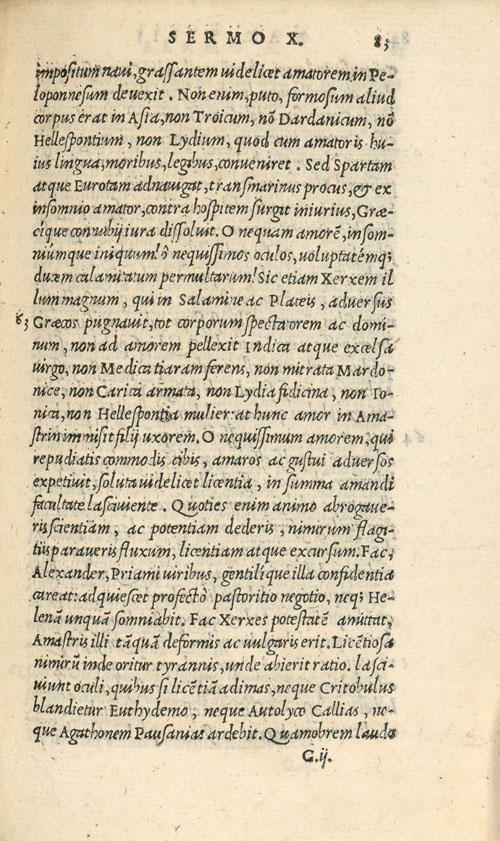 SERMO X. 83
impositum naui, grassantem uidelicet amatorem in Pe-
loponnesum deuexit. Non enim, puto, formosum aliud
corpus erat in Asia, non Troicum, nō Dardanicum, nō
Hellespontium, non Lydium, quod cum amatoris hu-
ius lingua, moribus, legibus, conueniret. Sed Spartam
atque Eurotam adnauigat, transmarinus procus, & ex
insomnio amator, contra hospitem surgit iniurius, Græ-
cique connubij iura dissoluit. O nequam amorē, insom-
niumque iniquum! ô nequissimos oculos, uoluptatémq;
ducem calamitatum permultarum! Sic etiam Xerxem il
lum magnum, qui in Salamine ac Plateis, aduersus
63 Græcos pugnauit, tot corporum spectatorem ac domi-
num, non ad amorem pellexit Indica atque excelsa
uirgo, non Medica tiaram ferens, non mitrata Mardo-
nice, non Carica armata, non Lydia fidicina, non Io-
nica, non Hellespontia mulier: at hunc amor in Ama-
strin immisit filij uxorem. O nequissimum amorem, qui
repudiatis commodis cibis, amaros ac gustui aduersos
expetiuit, soluta uidelicet licentia, in summa amandi
facultate lasciuiente. Quoties enim animo abrogaue-
ris scientiam, ac potentiam dederis, nimirum flagi-
tiis paraueris fluxum, licentiam atque excursum. Fac,
Alexander, Priami uiribus, gentilique illa confidentia
careat: adquiescet profectò pastoritio negotio, neq; He-
lenā unquā somniabit. Fac Xerxes potestatē amittat,
Amastris illi tāquā deformis ac uulgaris erit. Licētiosa
nimirū inde oritur tyrannis, unde abierit ratio. lasci-
uiunt oculi, quibus si licētiā adimas, neque Critobulus
blandietur Euthydemo, neque Autolyco Callias, ne-
que Agathonem Pausanias ardebit. Quamobrem laudo
G.ij.